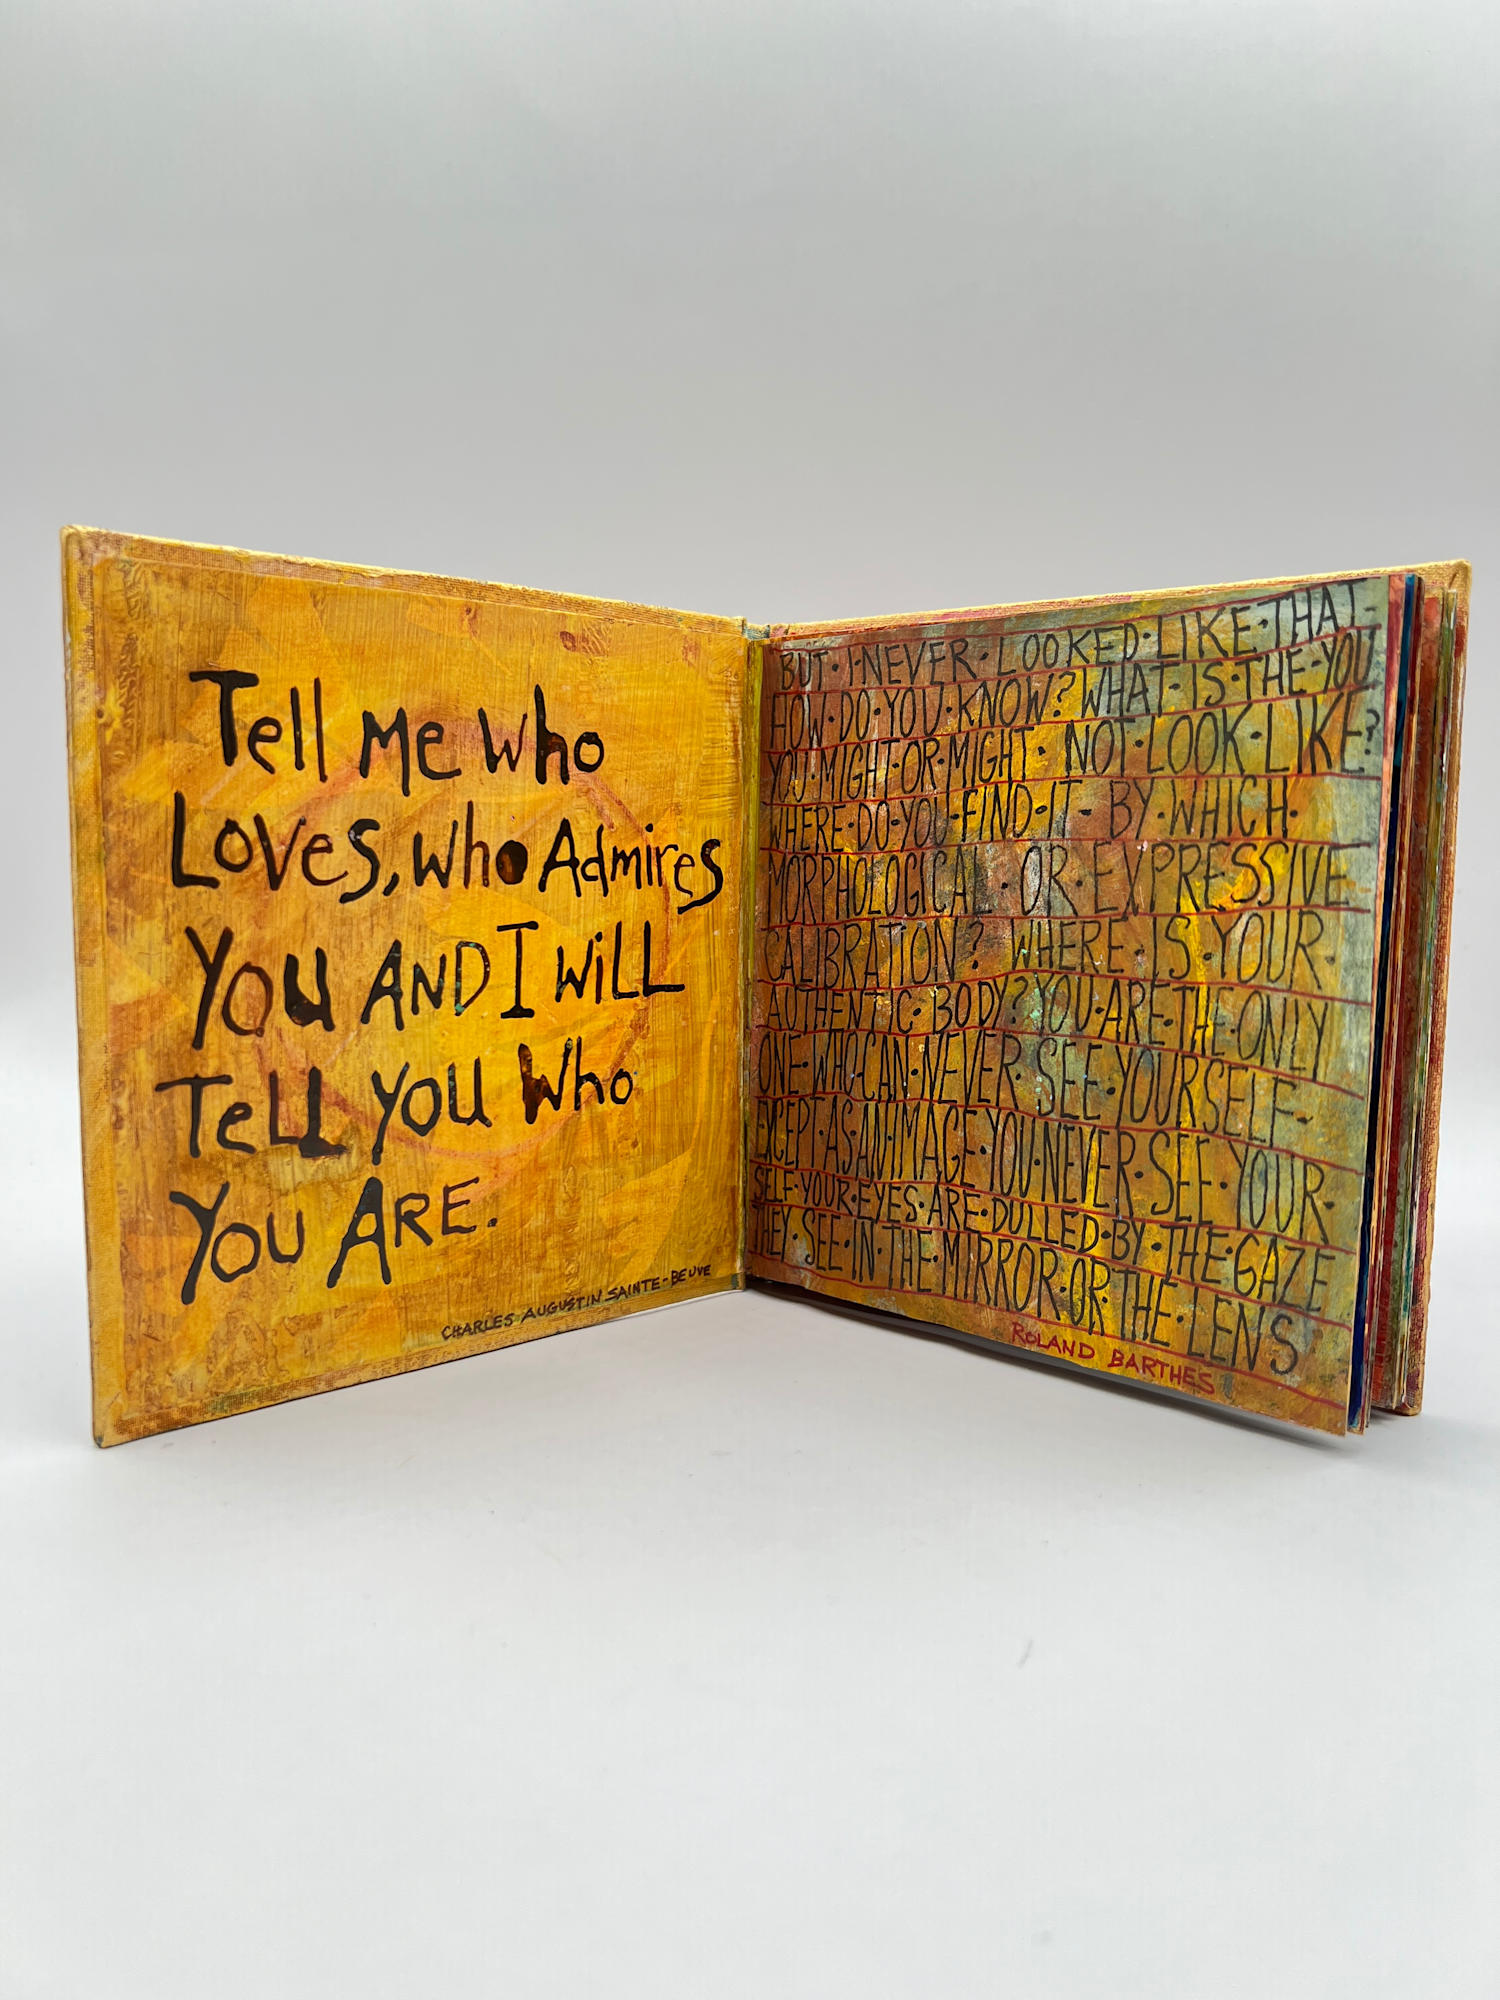 Tell Me Who
Loves, Who Admires
You AND I Will
Tell you Who
You ARE.
CHARLES AUGUSTIN SAINTE-BEUVE
BUT·I·NEVER·LOOKED·LIKE·THAT-
HOW·DO·YOU·KNOW? WHAT·IS·THE·YOU
YOU·MIGHT·OR·MIGHT·NOT·LOOK·LIKE?
WHERE·DO·YOU·FIND·IT-BY·WHICH·
MORPHOLOGICAL·OR·EXPRESSIVE
CALIBRATION? WHERE·IS·YOUR·
AUTHENTIC·BODY? YOU·ARE·THE·ONLY
ONE·WHO·CAN·NEVER·SEE·YOURSELF-
EXCEPT·AS·AN·IMAGE·YOU·NEVER·SEE·YOUR·
SELF·YOUR·EYES·ARE·DULLED·BY·THE·GAZE
THEY·SEE·IN·THE·MIRROR·OR·THE·LENS
ROLAND BARTHES